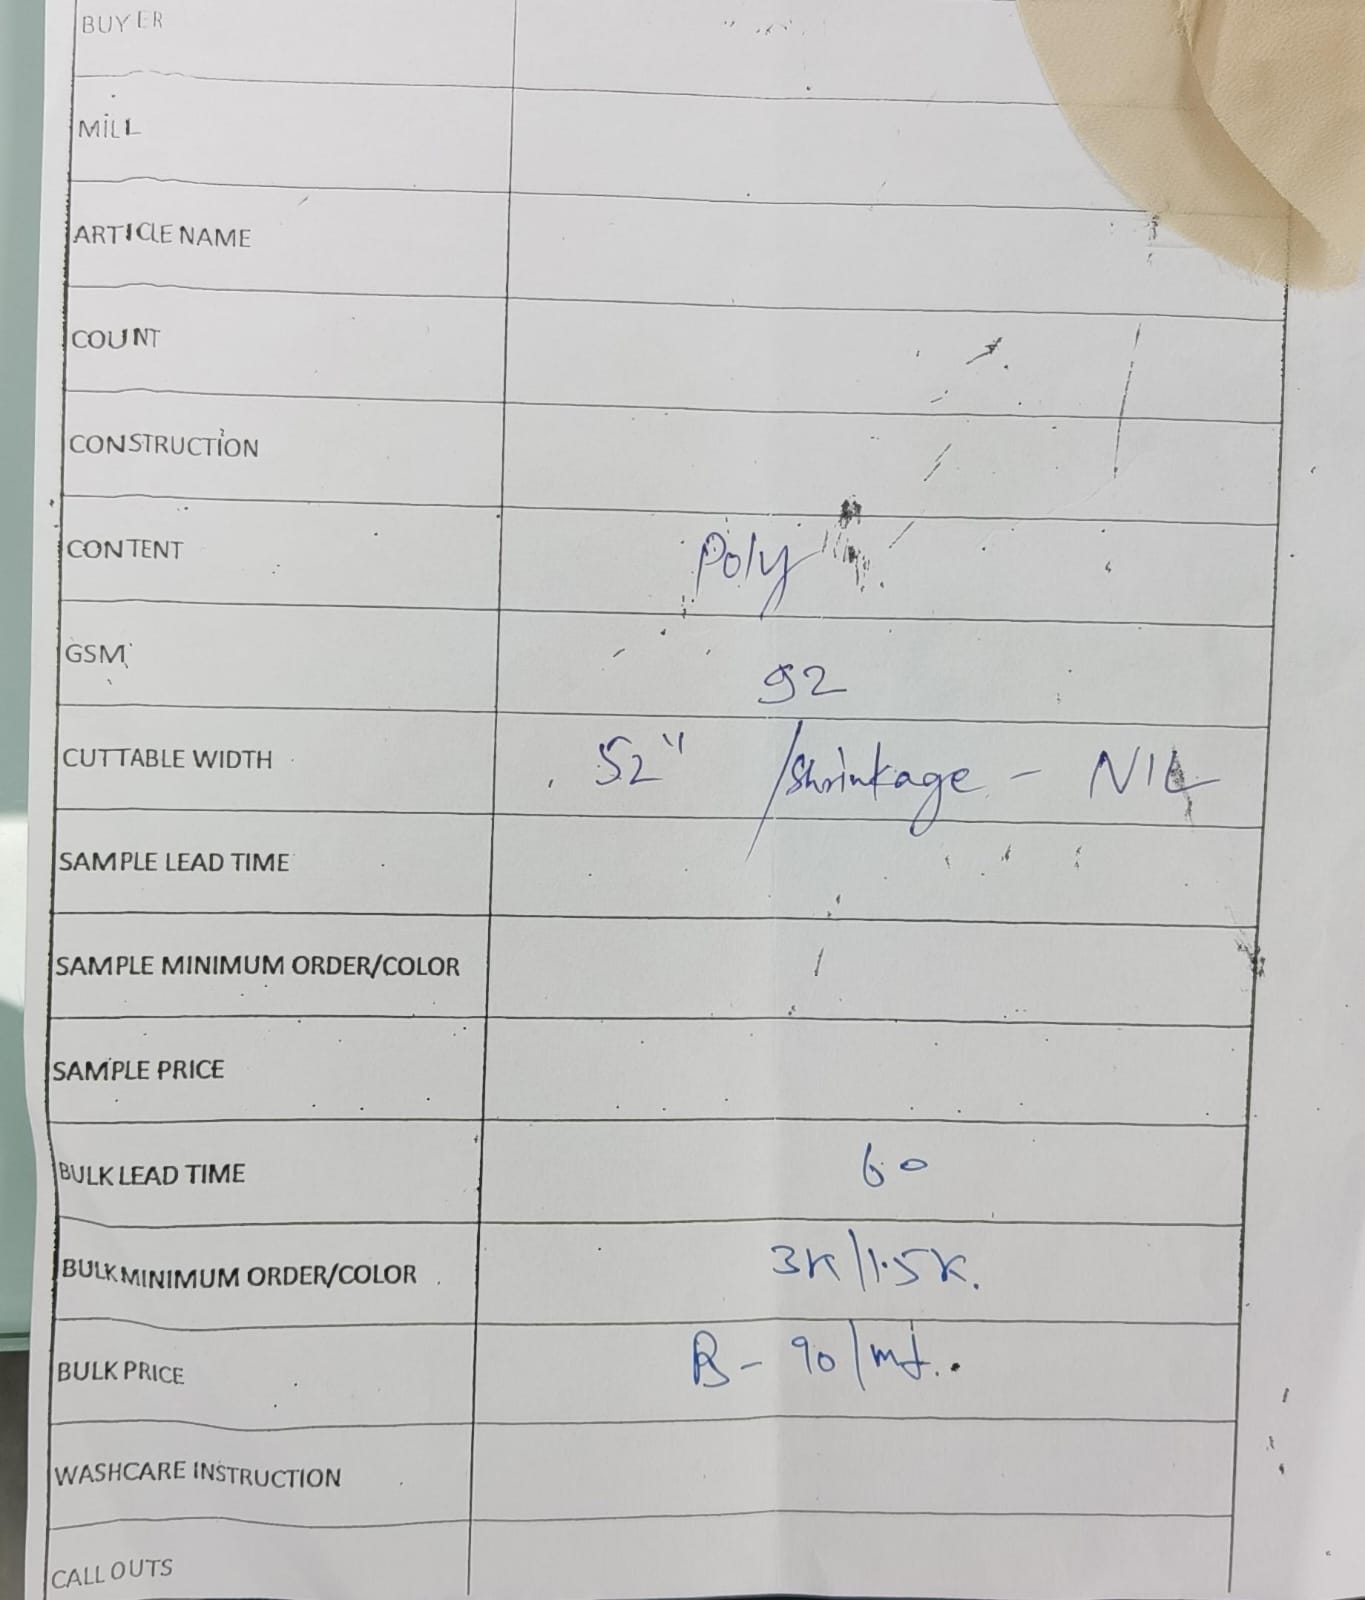 BUYER
MILL
ARTICLE NAME
COUNT
CONSTRUCTION
CONTENT Poly
GSM 92
CUTTABLE WIDTH 52" /Shrinkage - NIL
SAMPLE LEAD TIME
SAMPLE MINIMUM ORDER/COLOR
SAMPLE PRICE
BULK LEAD TIME 60
BULK MINIMUM ORDER/COLOR 3K/1.5K.
BULK PRICE - 90/mt.
WASHCARE INSTRUCTION
CALL OUTS